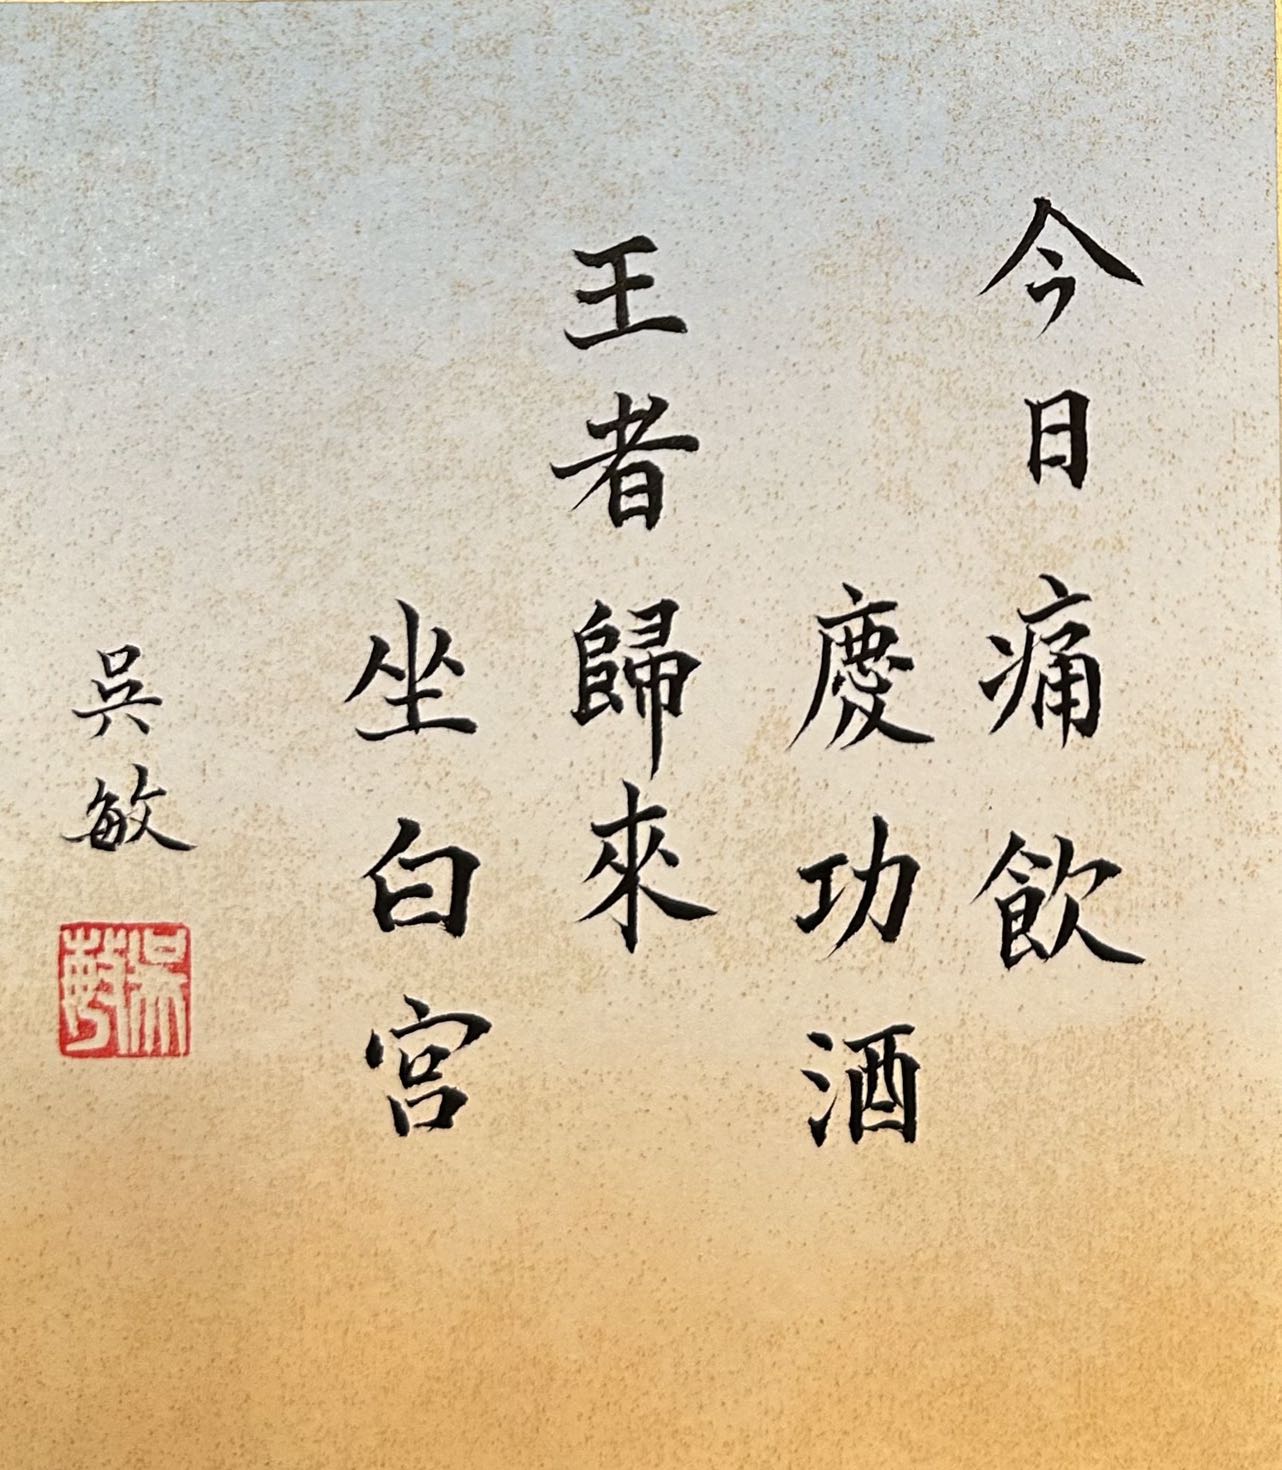 今日痛飲
慶功酒
王者歸來
坐白宮
吳敏